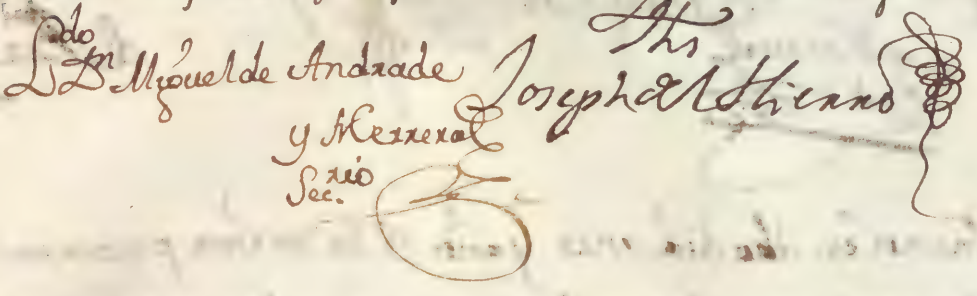 Ldo Dn Miguel de Andrade
y Herrera
Sec.rio
Ths
Joseph del Hierro